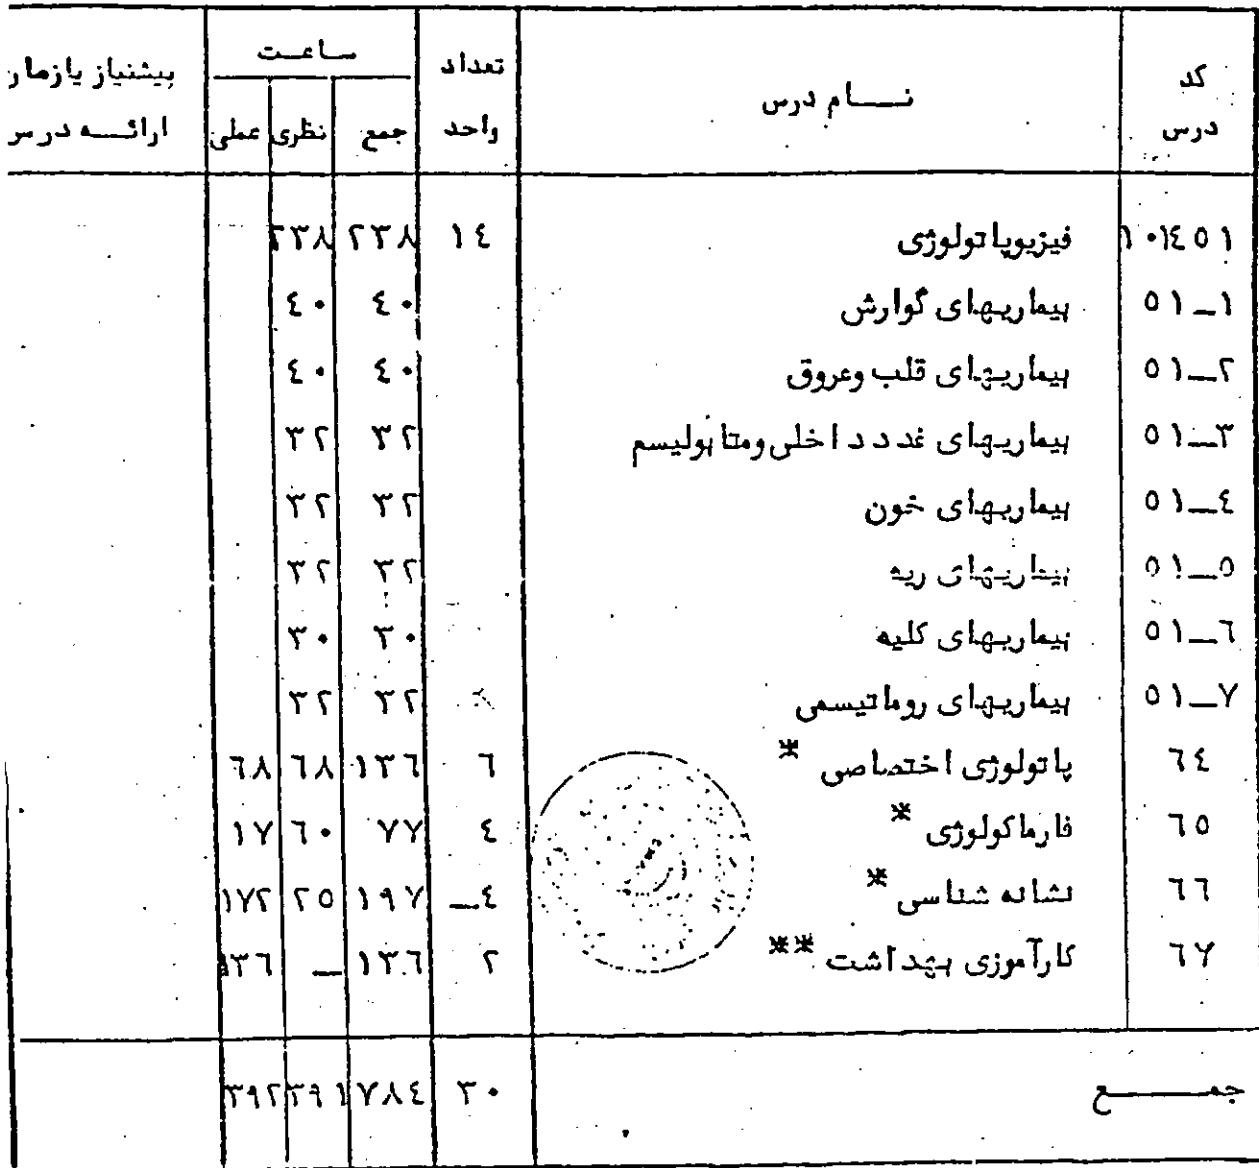 کد درس نـــام درس تعداد واحد ساعت پیشنیاز یازمان ارائـــه درس
جمع نظری عملی
۱۰۱٤٥۱ فیزیوپاتولوژی ۱٤ ۲۳۸ ۲۳۸
۵۱ــ۱ بیماریهای گوارش ٤۰ ٤۰
۵۱ــ۲ بیماریهای قلب وعروق ٤۰ ٤۰
۵۱ــ۳ بیماریهای غدد داخلی ومتابولیسم ۳۲ ۳۲
۵۱ــ٤ بیماریهای خون ۳۲ ۳۲
۵۱ــ۵ بیماریهای ریه ۳۲ ۳۲
۵۱ــ٦ بیماریهای کلیه ۳۰ ۳۰
۵۱ــ۷ بیماریهای روماتیسمی ۳۲ ۳۲
٦٤ پاتولوژی اختصاصی * ٦ ۱۳٦ ٦۸ ٦۸
٦۵ فارماکولوژی * ٤ ۷۷ ٦۰ ۱۷
٦٦ نشانه شناسی * ٤ــ ۱۹۷ ۲۵ ۱۷۲
٦۷ کارآموزی بهداشت ** ۲ ۱۳٦ ــ ۱۳٦
جمـــع ۳۰ ۷۸٤ ۳۹۱ ۳۹۲